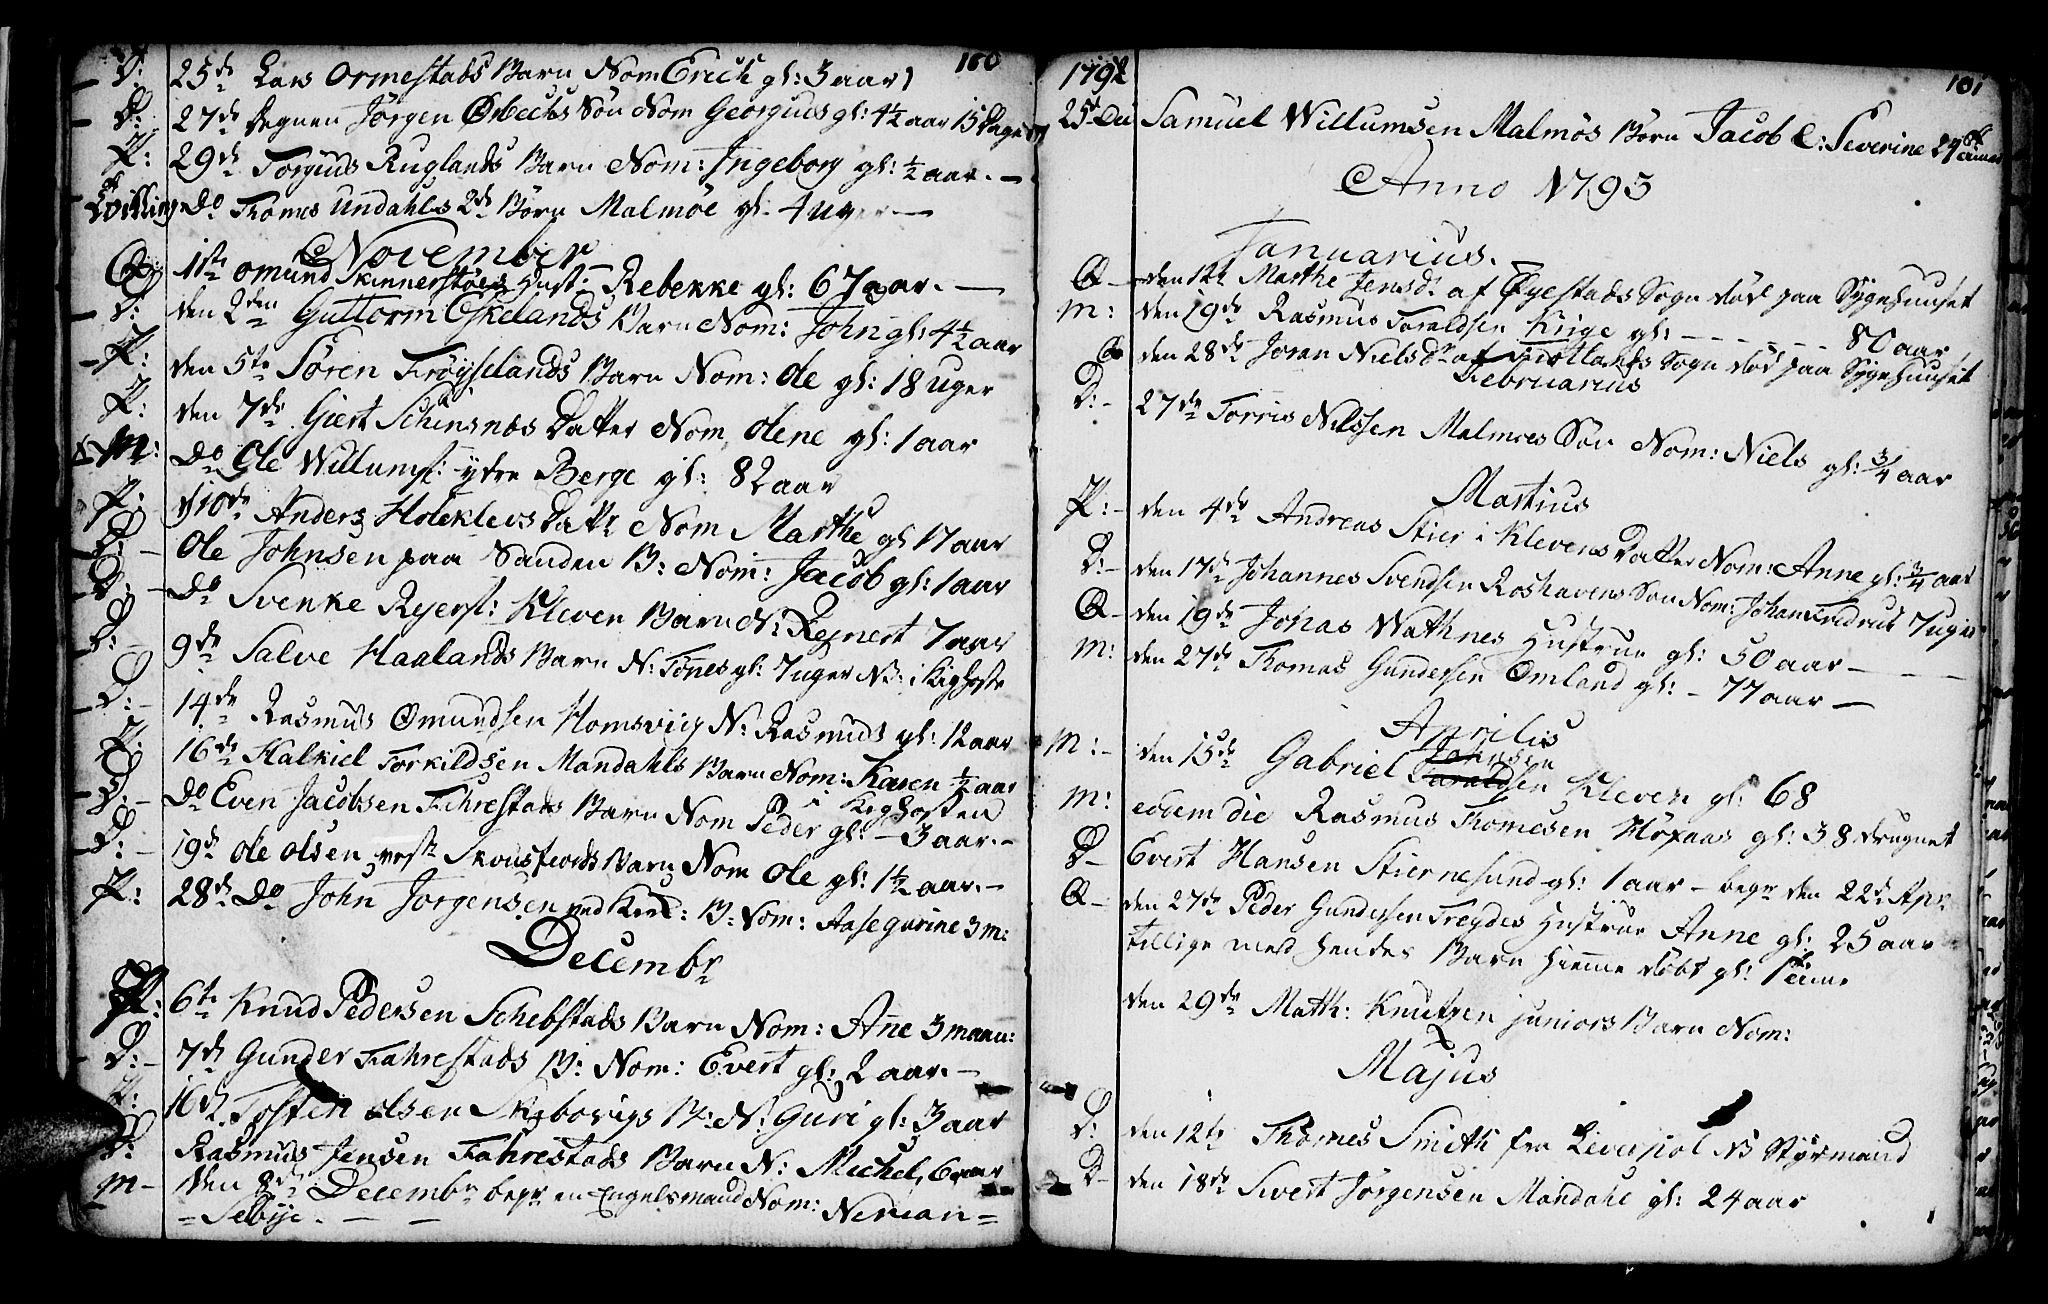 160
D: 25de Lars Ormestads Barn Nom Erich gl: 3 aar
D: 27de Degnen Jörgen Örbechs Sön Nom Georgius gl: 4½ aar 15 Dage
P: 29de Torgius Ruglands Barn Nom: Ingeborg gl: ½ aar. —
Tvilling do Thomes Undahls 2de Börn Malmöe gl: 4 uger —
November
Q: 1ste Omund Skinnerstöes Hust: Rebekke gl: 67 aar. —
D: den 2den Guttorm Eskelands Barn Nom: John gl: 4½ aar
P: den 5te Sören Fröyselands Barn Nom: Ole gl: 18 uger
P: den 7de Giert Schinsnes Datter Nom Olene gl: 1 aar
M: Do Ole Willums: ytre Berge gl: 82 aar
P: d 10de Anders Holeklevs Datt: Nom Marthe gl 17 aar
D: – Ole Johnsen paa Sanden B: Nom: Jacob gl: 1 aar
D: – do Svenke Reiers: Kleven Barn N: Rejnert 7 aar
D: – 9de Salve Haalands Barn N: Tönes gl: 7 uger NB: i Kighoste
D: – 14de Rasmus Omundsen Homsvig N: Rasmus gl: 12 aar
P: 16de Halkiel Torkildsen Mandahls Barn Nom: Karen ½ aar
D: – do Even Jacobsen Fahrestads Barn Nom Peder gl: – 3 aar. – Kighosten
D: – 19de Ole Olsen vest: Skousfiords Barn Nom Ole gl: 1½ aar. –
P: 28de Do John Jorgensen ved Kirk: B: Nom: Aasegurine 3 m:
Decembr
P: 6te Knud Pedersen Schebstads Barn Nom: Anne 3 maan:
D: – 7de Gunder Fahrestads B: Nom: Evert gl: 2 aar. –
P: 16de Tosten Olsen Skybovigs B: N: Guri gl: 3 aar
D: Rasmus Jensen Fahrestads Barn N: Michel, 6 aar
M – den 8de Decembr begr: en Engelsmand Nom: Nerian=
=Selbye. — —
1792 101
25de Du Samuel Willumsen Malmös Börn Jacob &: Severine
Anno 1793
Januarius.
Q – den 12te Marthe Jensdr af Öyestads Sogn död paa Sygehuuset
M: den 19de Rasmus Taraldsen Krige gl: - - - - - - 80 aar
Q den 28de Joran Nielsdr af Sogn död paa Sygehuuset
Februarius
D: – 27de Torris Nilssen Malmöes Sön Nom: Niels gl: ¾ aar
Martius
P: – den 4de Andreas Stier i Klevens Datter Nom: Anne gl: ¾ aar
D: – den 17de Johannes Svendsen Roshavens Sön Nom: 7 uger
Q – den 19de Jonas Wathnes Hustrue gl: 50 aar —
M: den 27de Thomas Gundersen Omland gl: – 77 aar —
Aprilis
M: – den 15de Gabriel Johnsen Kleven gl: 68
M: eodem die Rasmus Thomesen Höyaas gl: 38 drugnet
D – Evert Hansen Stiernesund gl: 1 aar – begr den 22de Apr:
Q – den 27de Peder Gundersen Freydes Hustrue Anne gl: 25 aar
tillige med hendes Barn hiemme döbt gl: 1
den 29de Matth: Knutzen juniors Barn Nom:
Majus
D: den 12te Thomes Smith fra Liverpol NB Styrmand
D – den 18de Sivert Jörgensen Mandahl gl: 24 aar